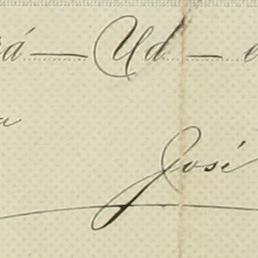 á — Ud — 
José